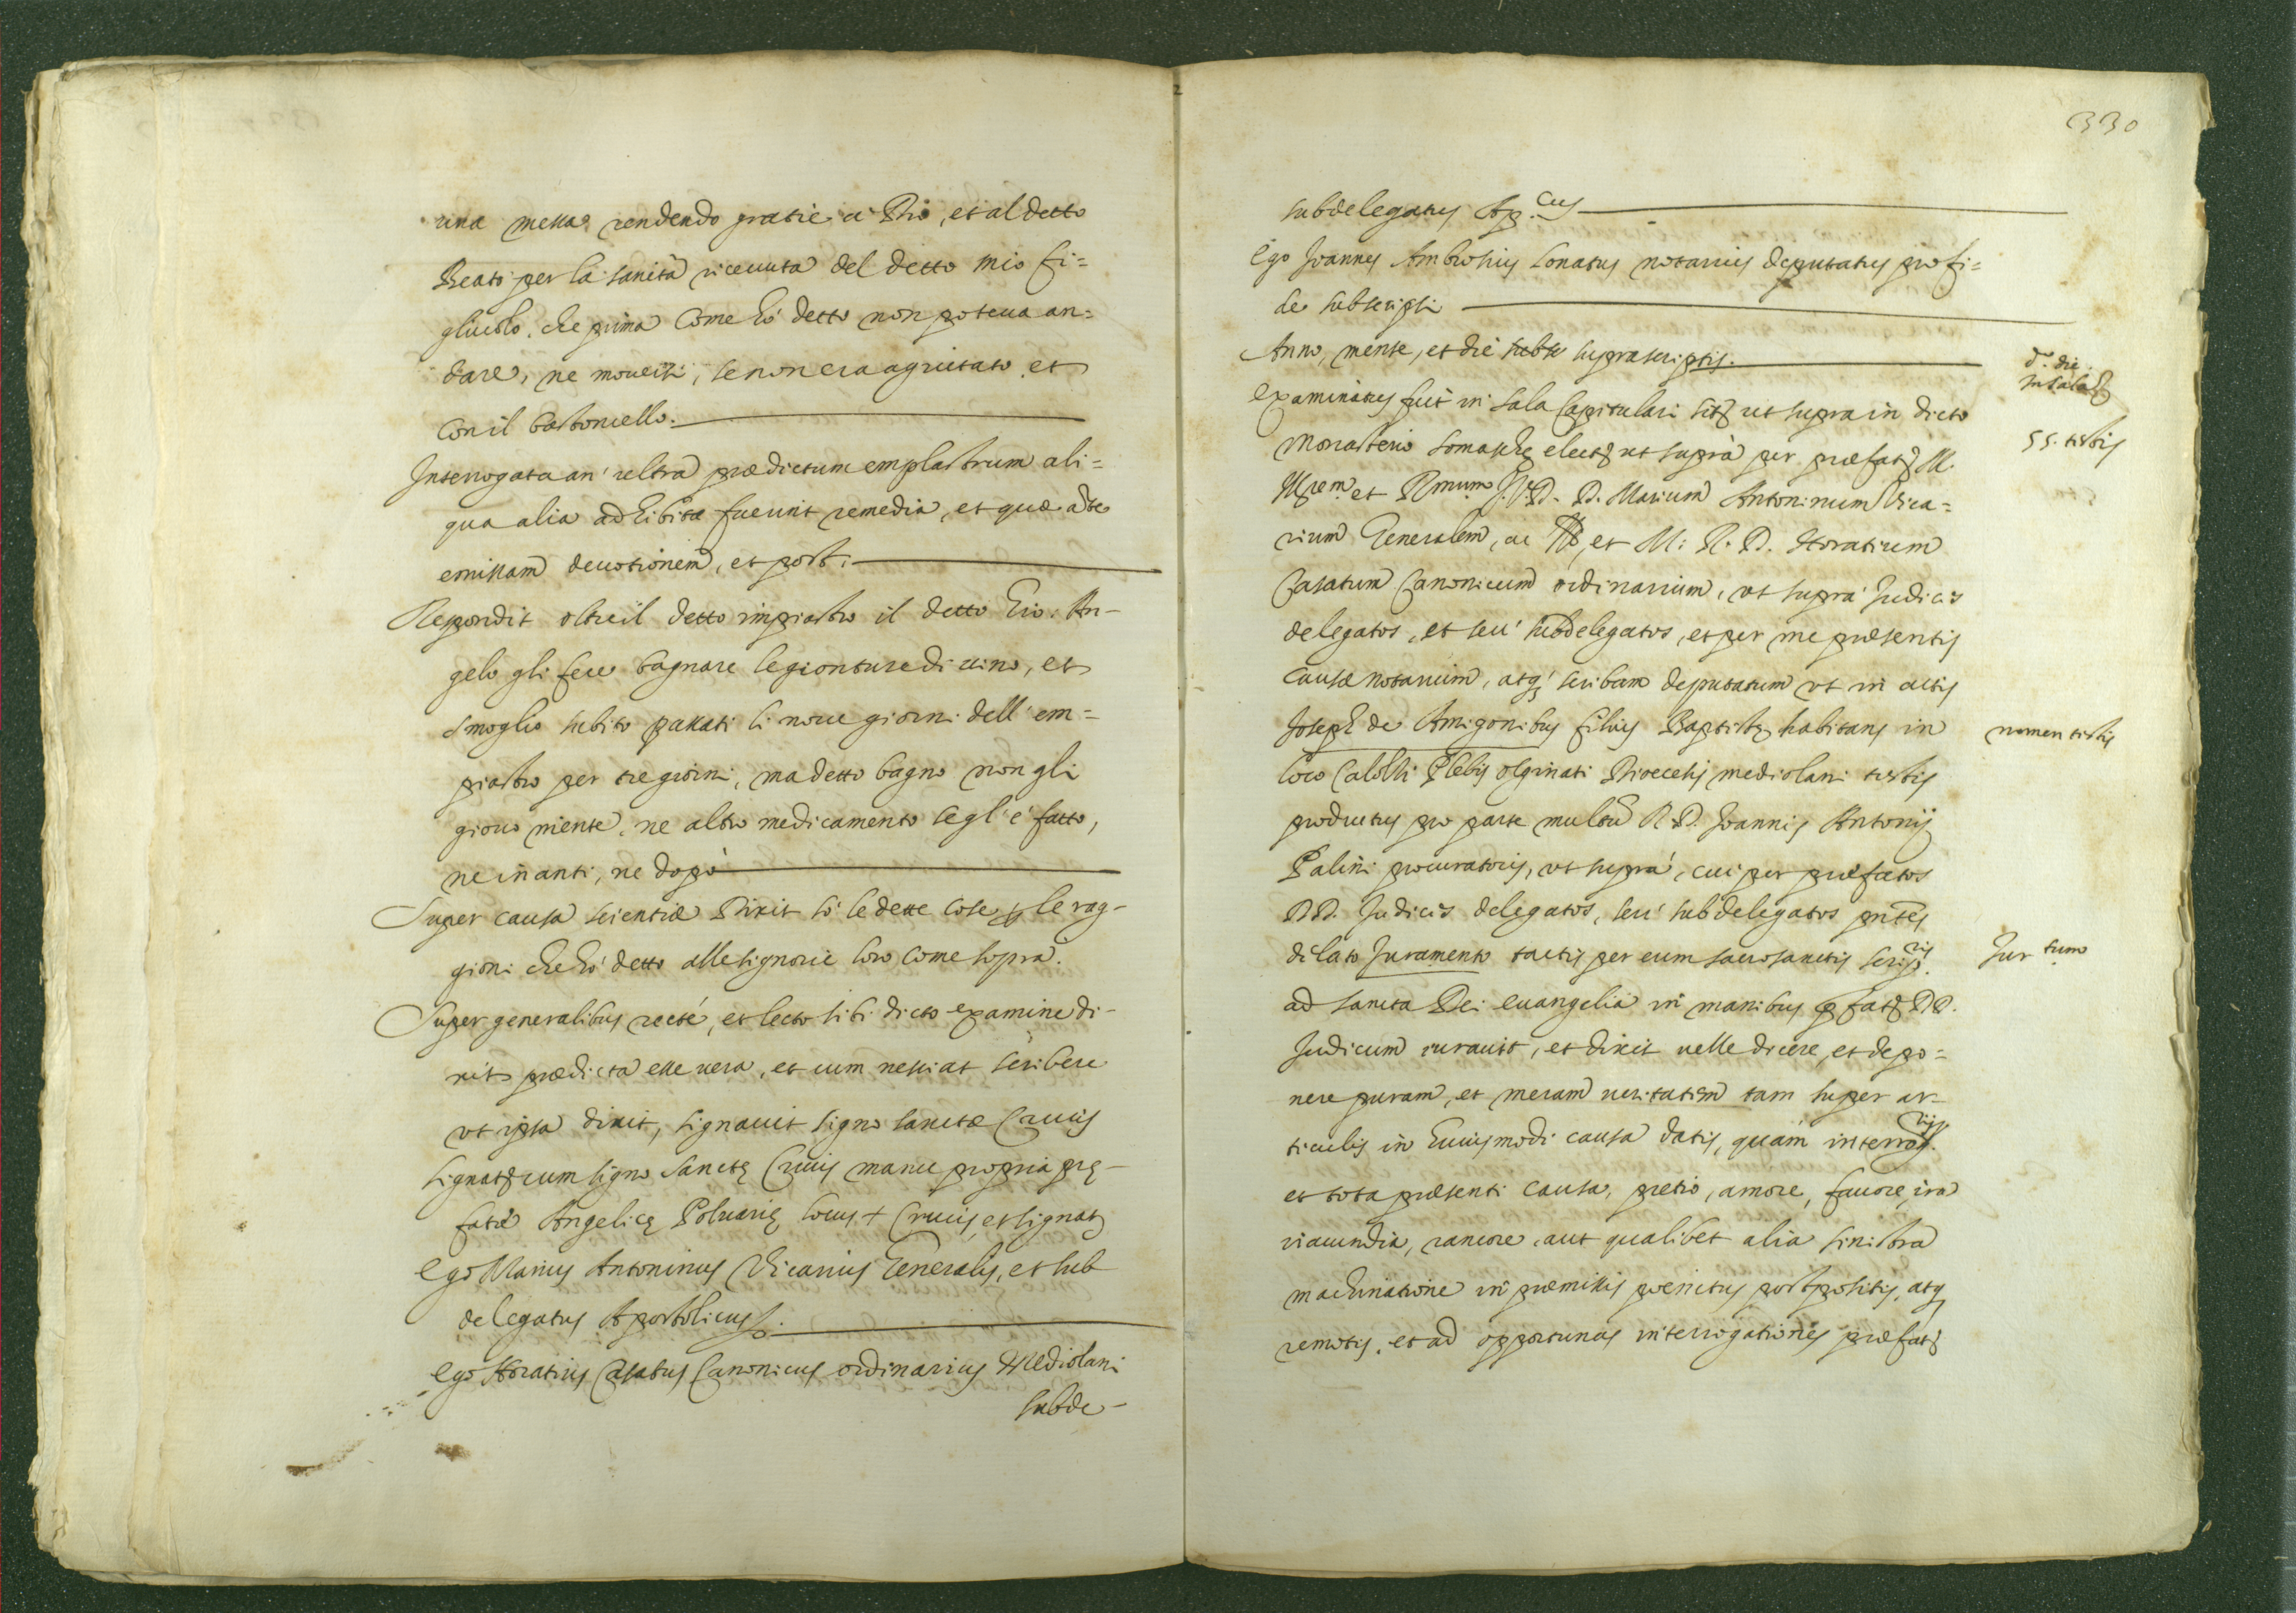 una messa rendendo gratie à Dio, et al detto
Beato per la sanità riceuuta del detto mio fi=
gliuolo. che prima come hò detto non poteua an=
dare, ne mouersi, se non era agiutato, et
con il bastoncello.
Interrogata an' ultra prædictum emplastrum ali=
qua alia adhibita fuerint remedia, et quæ ante
emissam deuotionem, et post.
Respondit oltre il detto impiastro il detto Gio: An-
gelo gli fece bagnare le gionture di uino, et
smoglio subito passati li noue giorni dell' em=
piastro per tre giorni, ma detto bagno non gli
giouò niente, ne altro medicamento se gl' è fatto,
ne inanti, ne dopò
Super causa scientiæ Dixit sò le dette cose p le rag-
gioni che hò detto alle signorie loro come sopra.
Super generalibus recté, et lecto sibi dicto examine di-
xit prædicta esse uera, et cum nesciat scribere
vt ipsa dixit, signauit signo sanctæ Crucis
signat cum signo sanctę Crucis manu propria prę-
fatæ Angelicę Poluarię locus + Crucis, et signat
Ego Marius Antoninus Vicarius Generalis, et sub
delegatus Apostolicus.
Ego Horatius Casatus Canonicus ordinarius Mediolani
subde-
330
subdelegatus Ap.cus
Ego Joannes Ambrosius Lonatus notarius deputatus pro fi=
de subscripsi
Anno, mense, et die subs suprascriptis.
d.a die
in sala
Examinatus fuit in sala Capitulari sitę ut supra in dicto
55. testis
Monasterio Somaschę electę ut suprà per præfatę M.
Illrem et Rmum J.V.D. D. Marium Antoninum Vica=
rium Generalem, ac et M: R. D. Horatium
Casatum Canonicum ordinarium, vt supra' Judices
delegatos, et seu' subdelegatos, et per me præsentis
causæ notarium, atq scribam deputatum vt in actis
Joseph de Amigonibus filius Baptistę habitans in
nomen testis
loco Calolzi Plebis olginati Dioecesis mediolani testis
productus pro parte multũ R. D. Joannis Antonij
Palini procuratoris, vt supra', cui per præfatos
DD. Judices delegatos, seu' subdelegatos pntes
dilato Juramento tactis per eum sacrosanctis scrip.ris
Jur tum
ad sancta Dei euangelia in manibus pfatę DD.
Judicum iurauit, et dixit uelle dicere, et depo=
nere puram, et meram ueritatem tam super ar-
ticulis in huiusmodi causa datis, quàm interro.rijs
et tota præsenti causa, pretio, amore, fauore, ira
iracundia, rancore, aut qualibet alia sinistra
machinatione in præmissis poenitus postpositis, atq
remotis, et ad opportunas interrogationes præfatę